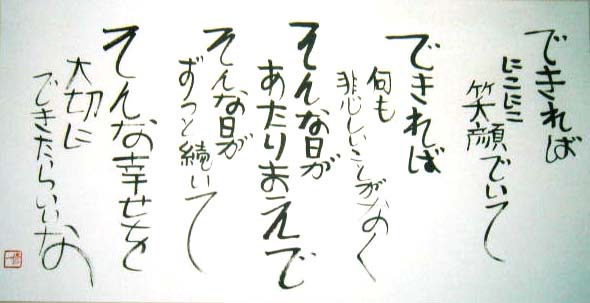 できれば
にこにこ
笑顔でいて
できれば
何も
悲しいことがなく
そんな日が
あたりまえで
そんな日が
ずっと続いて
そんな幸せを
大切に
できたらいいな